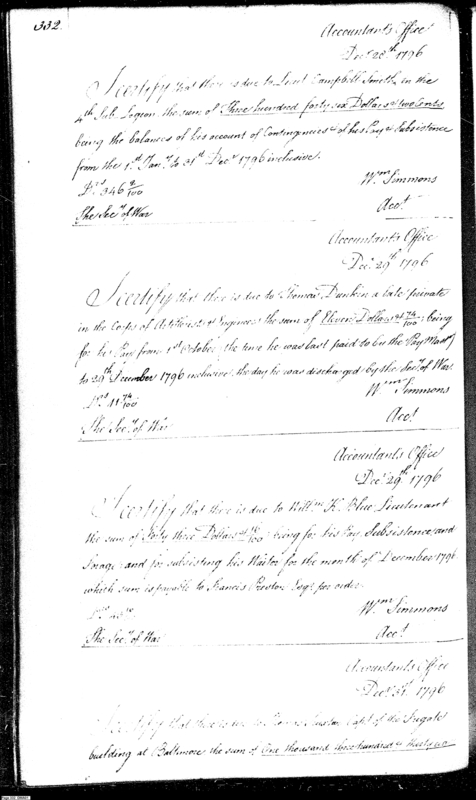 332.
Accountants Office
Decr 28th 1796
I certify that there is due to Lieut Campbell Smith in the
4th Sub Legion the sum of Three hundred forty six Dollars & two Cents
being the balance of his account of Contingencies & of his Pay & Subsistence
from the 1st Jany to 31st Decr 1796 inclusive.
Drs 346 2/100
Wm Simmons
The Secy of War
Acct
Accountants Office
Decr 29th 1796
I certify that there is due to Thomas a late private
in the Corps of Artillerists & Engineers the sum of Eleven Dollars & 74/100 being
for his Pay from 1st October the time he was last paid to by the Pay Master
to 29th December 1796 inclusive the day he was discharged by the Secy of War.
Drs 11 74/100
Wm Simmons
The Secy of War
Acct
Accountants Office
Decr 29th 1796
I certify that there is due to Willm K. Blue Lieutenant
the sum of Forty three Dollars being for his Pay, Subsistence and
Forage and for subsisting his Waiter for the month of December 1796
which sum is payable to Francis Preston Esqr or order
Wm Simmons
The Secy of War
Acct
Accountants Office
Decr 31st 1796
I certify that there is due to Capt of the Frigate
building at Baltimore the sum of One thousand three hundred & thirty two